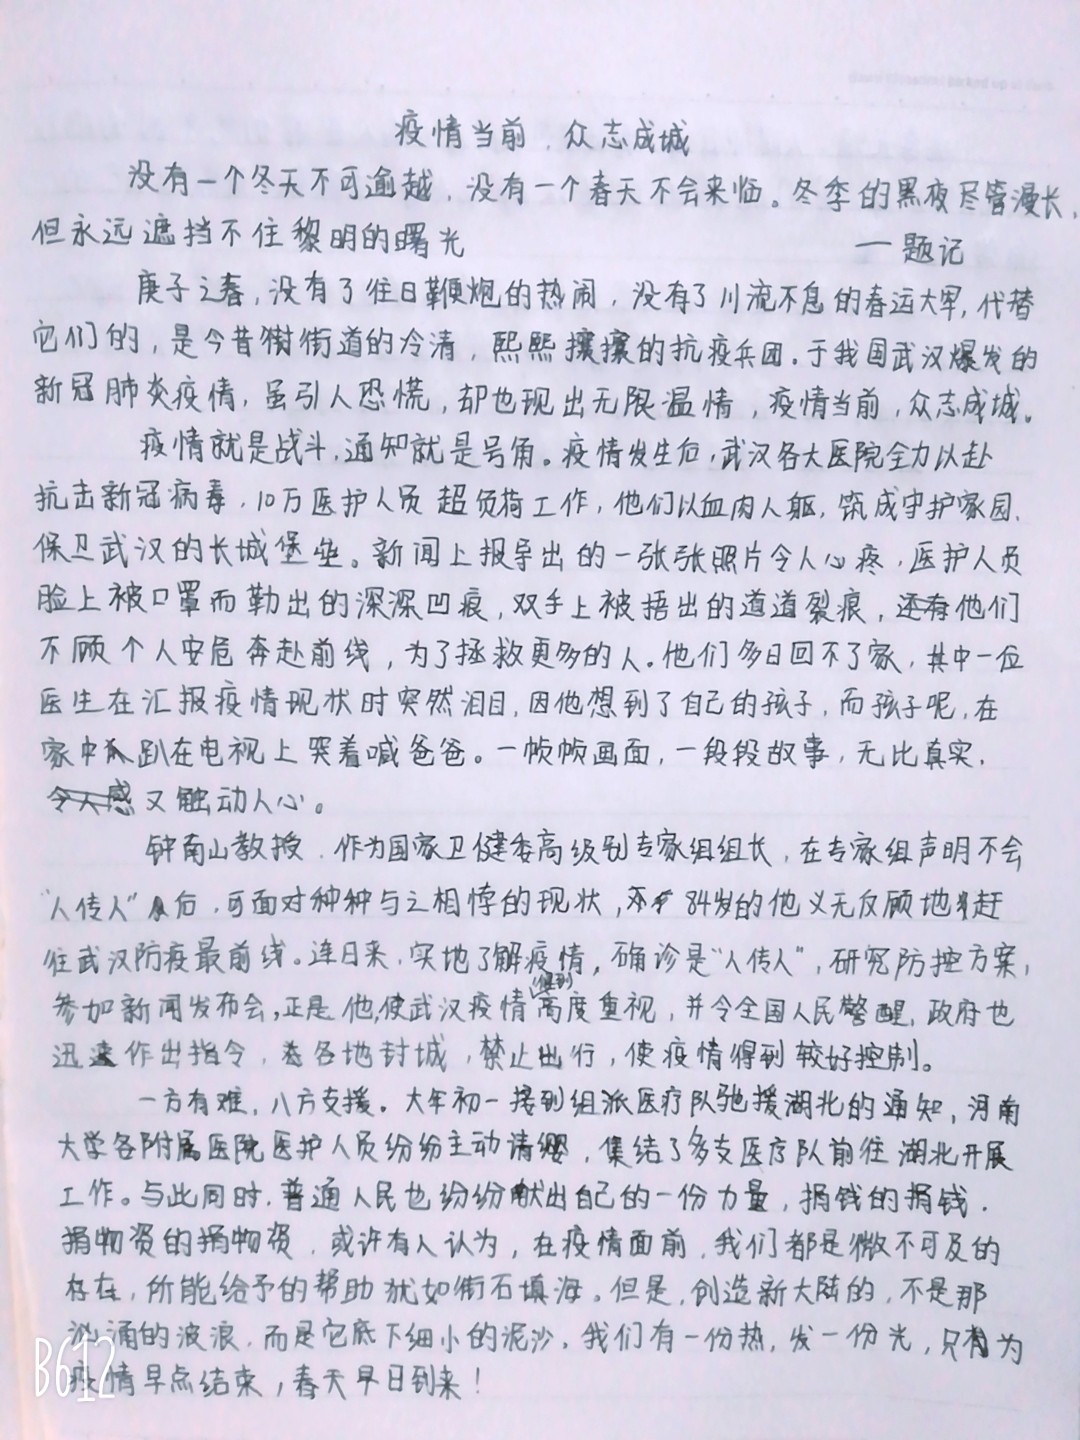 疫情当前，众志成城
没有一个冬天不可逾越，没有一个春天不会来临。冬季的黑夜尽管漫长，
但永远遮挡不住黎明的曙光 一题记
庚子之春，没有了往日鞭炮的热闹，没有了川流不息的春运大军，代替
它们的，是今昔街道的冷清，熙熙攘攘的抗疫兵团。于我国武汉爆发的
新冠肺炎疫情，虽引人恐慌，却也现出无限温情，疫情当前，众志成城。
疫情就是战斗，通知就是号角。疫情发生后，武汉各大医院全力以赴
抗击新冠病毒，10万医护人员超负荷工作，他们以血肉人躯，筑成守护家园、
保卫武汉的长城堡垒。新闻上报导出的一张张照片令人心疼，医护人员
脸上被口罩而勒出的深深凹痕，双手上被捂出的道道裂痕，还有他们
不顾个人安危奔赴前线，为了拯救更多的人。他们多日回不了家，其中一位
医生在汇报疫情现状时突然泪目，因他想到了自己的孩子，而孩子呢，在
家中趴在电视上哭着喊爸爸。一帧帧画面，一段段故事，无比真实，
令人感又触动人心。
钟南山教授，作为国家卫健委高级别专家组组长，在专家组声明不会
“人传人”后，可面对种种与之相悖的现状，84岁的他义无反顾地赶
往武汉防疫最前线。连日来，实地了解疫情，确诊是“人传人”，研究防控方案，
参加新闻发布会，正是他，使武汉疫情得到高度重视，并令全国人民警醒，政府也
迅速作出指令，各地封城，禁止出行，使疫情得到较好控制。
一方有难，八方支援。大年初一接到组派医疗队驰援湖北的通知，河南
大学各附属医院医护人员纷纷主动请缨，集结了多支医疗队前往湖北开展
工作。与此同时，普通人民也纷纷献出自己的一份力量，捐钱的捐钱，
捐物资的捐物资，或许有人认为，在疫情面前，我们都是微不可及的
存在，所能给予的帮助犹如衔石填海。但是，创造新大陆的，不是那
汹涌的波浪，而是它底下细小的泥沙，我们有一份热，发一份光，只为
疫情早点结束，春天早日到来！
B612